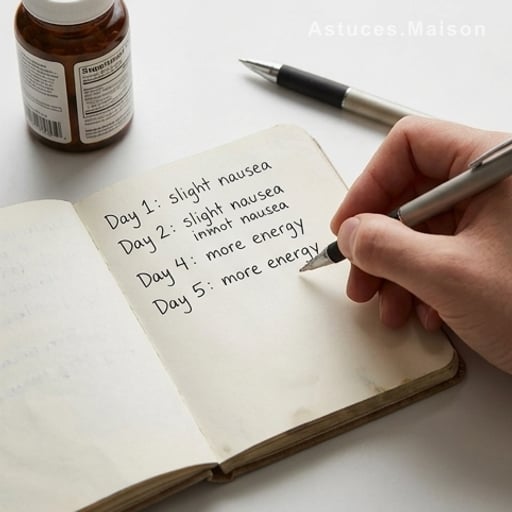 Astuces.Maison
Day 1: slight nausea
Day 2: slight nausea
inmot nausea
Day 4: more energy
Day 5: more energy